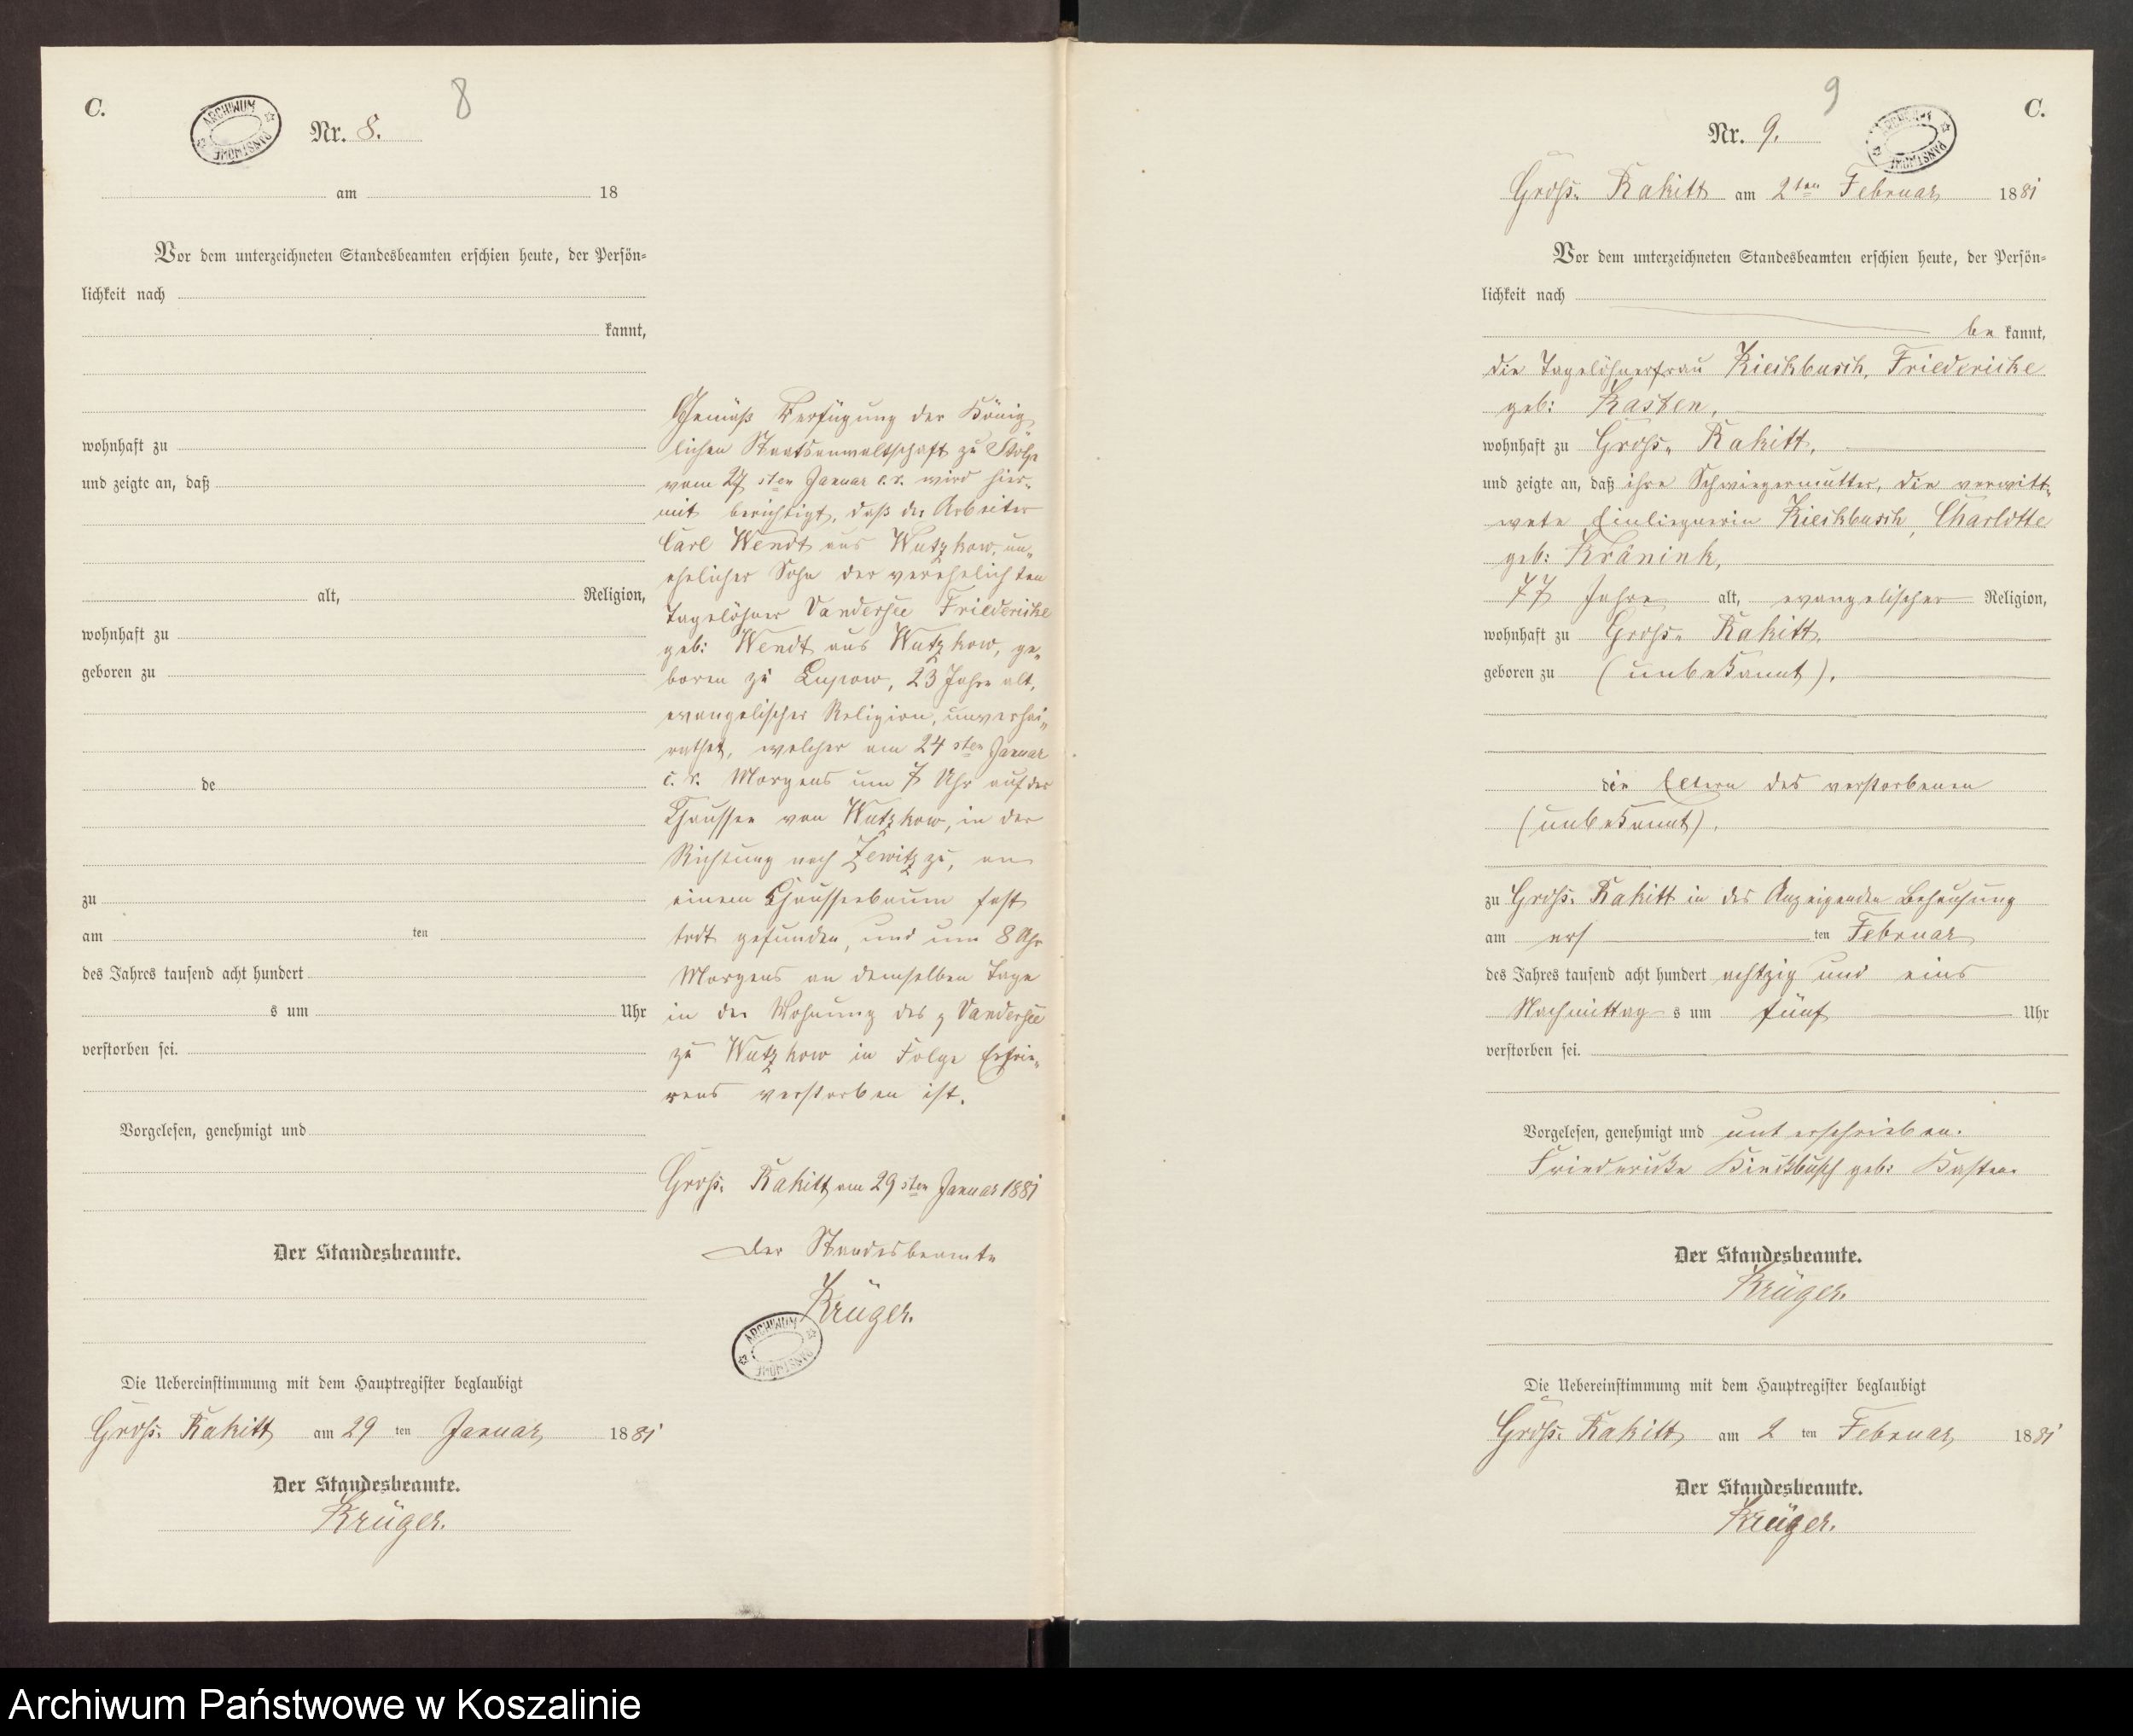 C.
ARCHIWUM PAŃSTWOWE
Nr. 8.
8
am 18
Vor dem unterzeichneten Standesbeamten erschien heute, der Persön=
lichkeit nach
kannt,
wohnhaft zu
und zeigte an, daß
alt, Religion,
wohnhaft zu
geboren zu
de
zu
am ten
des Jahres tausend acht hundert
s um Uhr
verstorben sei.
Vorgelesen, genehmigt und
Der Standesbeamte.
Die Uebereinstimmung mit dem Hauptregister beglaubigt
Groß- Rakitt am 29 ten Januar 1881
Der Standesbeamte.
Krüger.
Gemäß Verfügung der König
lichen Staatsanwaltschaft zu Stolp
vom 27 sten Januar c. r. wird hier-
mit berichtigt, daß der Arbeiter
Carl Wendt aus Wutzkow, un-
ehelicher Sohn der verehelichten
Tagelöhner Vandersee Friedericke
geb: Wendt aus Wutzkow, ge-
boren zu Lupow, 23 Jahre alt,
evangelischer Religion, unverhei-
rathet, welcher am 24 sten Januar
c. r. Morgens um 7 Uhr auf der
Chaussee von Wutzkow, in der
Richtung nach Zewitz zu, an
einem Chausseebaum fast
todt gefunden, und um 8 Uhr
Morgens an demselben Tage
in der Wohnung des Vandersee
zu Wutzkow in Folge Erfrie-
rens verstorben ist.
Groß- Rakitt am 29 sten Januar 1881
Der Standesbeamte
Krüger.
ARCHIWUM PAŃSTWOWE
9
C.
Nr. 9.
ARCHIWUM PAŃSTWOWE
Groß- Rakitt am 2ten Februar 1881
Vor dem unterzeichneten Standesbeamten erschien heute, der Persön=
lichkeit nach
be kannt,
die Tagelöhnerfrau Kieckbusch, Friedericke
geb: Kasten,
wohnhaft zu Groß- Rakitt,
und zeigte an, daß ihre Schwiegermutter, die verwitt-
wete Einliegerin Kieckbusch, Charlotte
geb: Kränink,
77 Jahre alt, evangelischer Religion,
wohnhaft zu Groß- Rakitt,
geboren zu (unbekannt),
die Eltern des verstorbenen
(unbekannt),
zu Groß- Rakitt in des Anzeigenden Behausung
am ers ten Februar
des Jahres tausend acht hundert achtzig und eins
Nachmittag s um fünf Uhr
verstorben sei.
Vorgelesen, genehmigt und unterschrieben.
Friedericke Kieckbusch geb: Kasten.
Der Standesbeamte.
Krüger.
Die Uebereinstimmung mit dem Hauptregister beglaubigt
Groß- Rakitt am 2 ten Februar 1881
Der Standesbeamte.
Krüger.
Archiwum Państwowe w Koszalinie